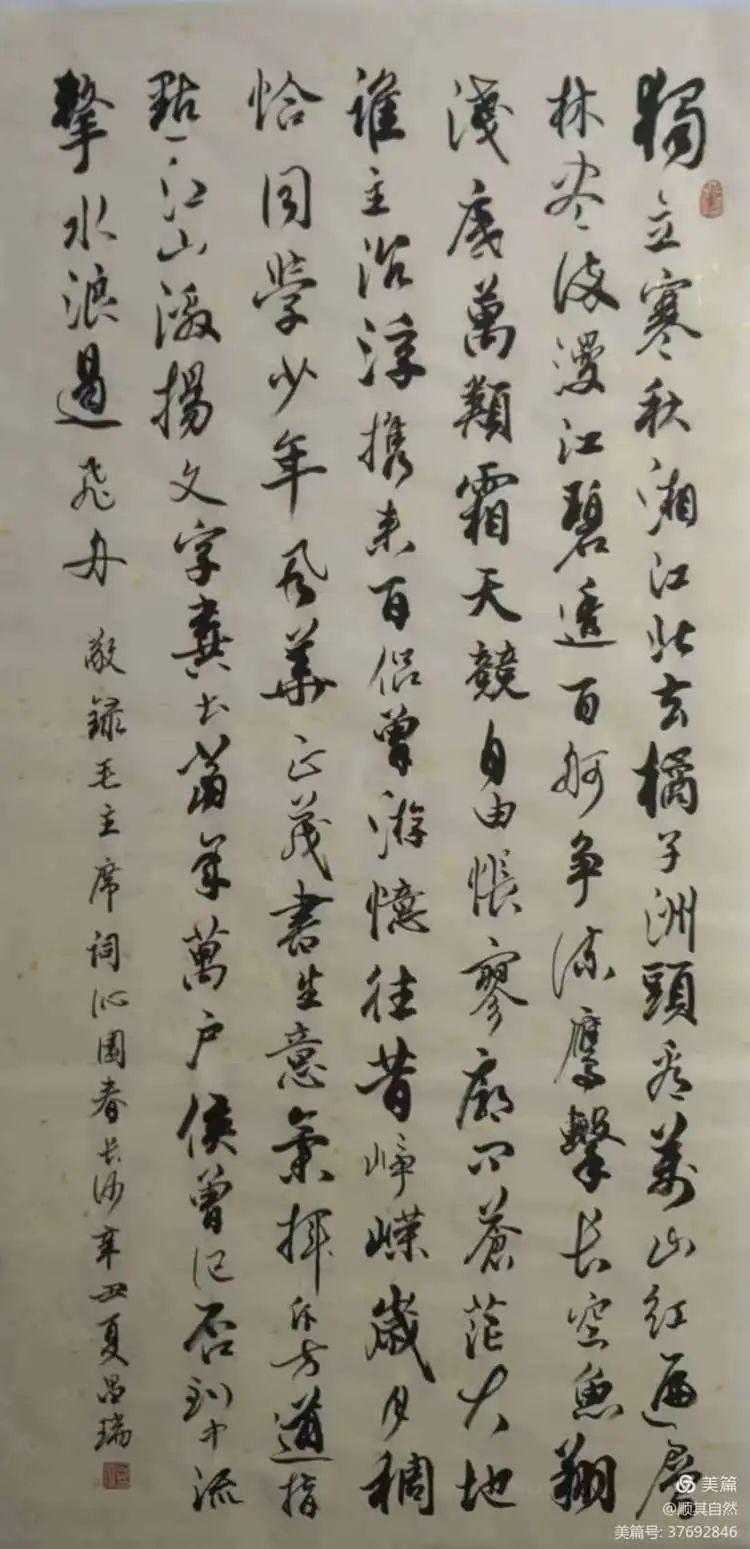 獨立寒秋湘江北去橘子洲頭看萬山红遍層
林尽染漫江碧透百舸争流鷹擊长空魚翔
淺底萬類霜天競自由悵寥廓问蒼茫大地
誰主沉浮携来百侣曾游憶往昔崢嶸歲月稠
恰同學少年风華正茂書生意氣揮斥方遒指
點江山激揚文字糞土當年萬户侯曾记否到中流
擊水浪遏飛舟
敬録毛主席词沁園春长沙辛丑夏昌瑞
美篇
@顺其自然
美篇号: 37692846